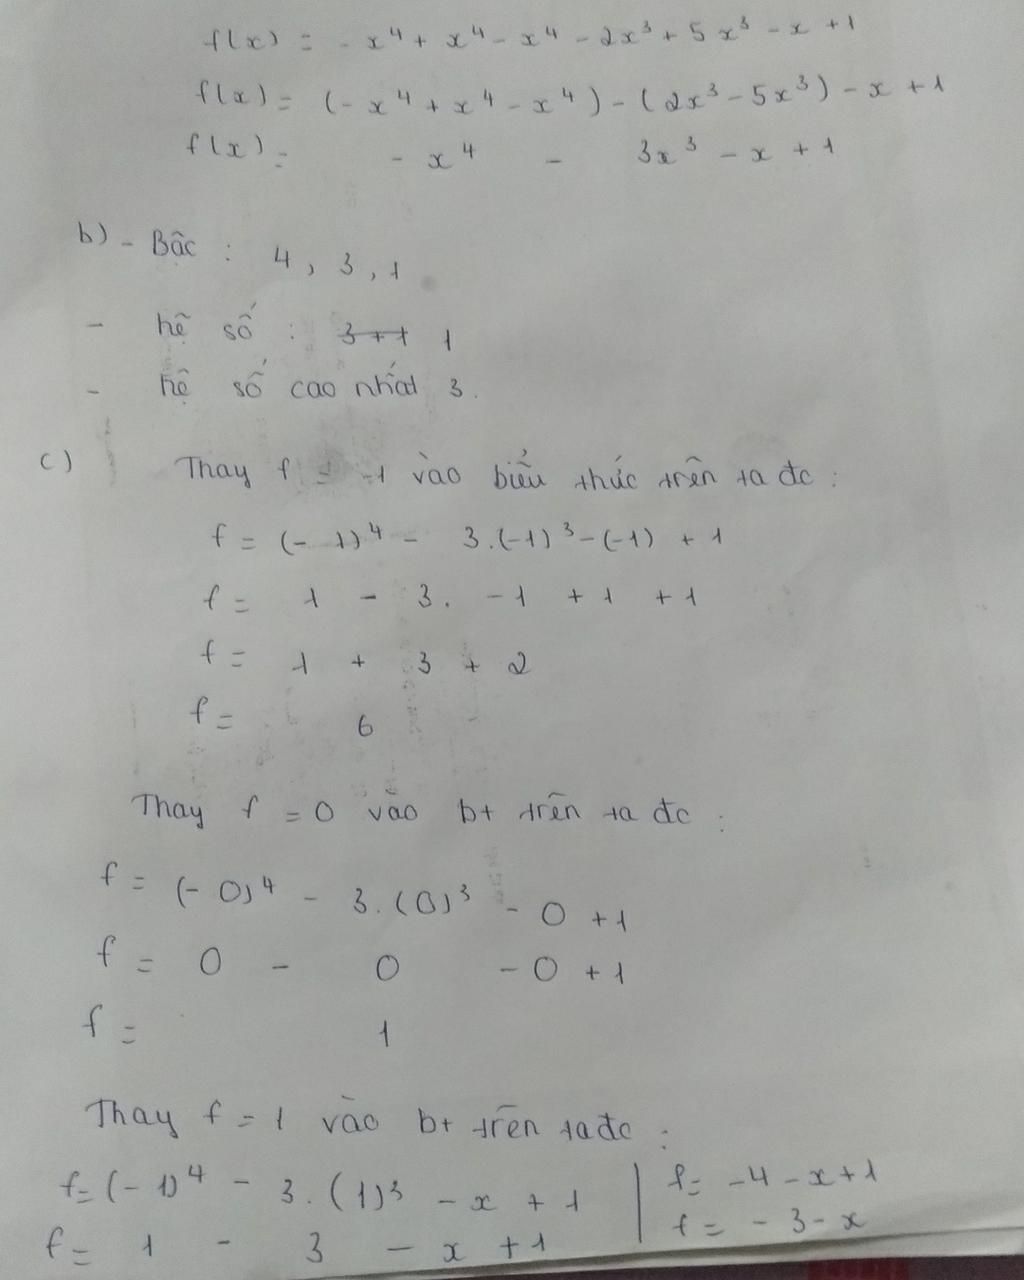 f(x) = - x⁴ + x⁴ - x⁴ - 2x³ + 5x³ - x + 1
f(x) = (- x⁴ + x⁴ - x⁴) - (2x³ - 5x³) - x + 1
f(x) = - x⁴ - 3x³ - x + 1
b) - Bậc : 4, 3, 1
- hệ số : 3 + 1 1
- hệ số cao nhất 3.
c) Thay f = -1 vào biểu thức trên ta đc :
f = (- 1)⁴ - 3.(-1)³ - (-1) + 1
f = 1 - 3. -1 + 1 + 1
f = 1 + 3 + 2
f = 6
Thay f = 0 vào bt trên ta đc :
f = (- 0)⁴ - 3.(0)³ - 0 + 1
f = 0 - 0 - 0 + 1
f = 1
Thay f = 1 vào bt trên ta đc :
f = (- 1)⁴ - 3.(1)³ - x + 1
f = 1 - 3 - x + 1
f = -4 - x + 1
f = - 3 - x